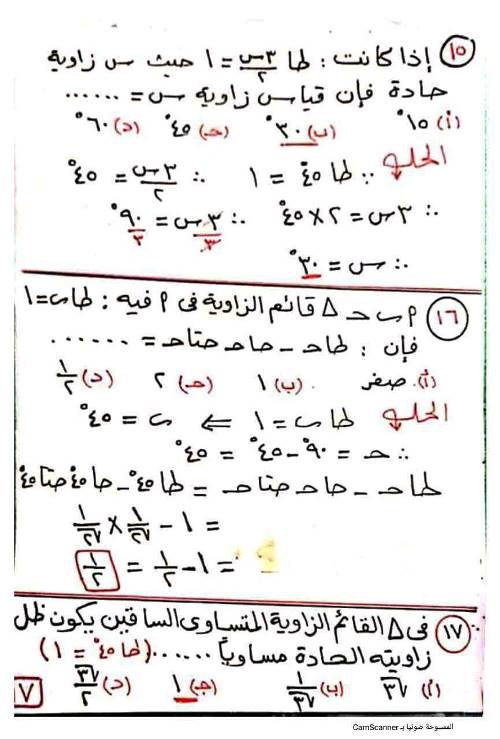 ١٥ إذا كانت : طا ٣س/٢ = ١ حيث س زاوية
حادة فإن قياس زاوية س = ......
(أ) ١٥° (ب) ٣٠° (جـ) ٤٥° (د) ٦٠°
الحل
∵ طا ٤٥° = ١ ∴ ٣س/٢ = ٤٥°
∴ ٣س = ٢ × ٤٥ ∴ ٣س/٣ = ٩٠°/٣
∴ س = ٣٠°
١٦ ٩ ب حـ Δ قائم الزاوية فى ٩ فيه : طاب = ١
فإن : طاحـ - حاحـ حتاحـ = ......
(أ) صفر (ب) ١ (جـ) ٢ (د) ١/٢
الحل طاب = ١ ⇐ ب = ٤٥°
∴ حـ = ٩٠° - ٤٥° = ٤٥°
طاحـ - حاحـ حتاحـ = طا٤٥° - حا٤٥° حتا٤٥°
= ١ - ١/√٢ × ١/√٢
= ١ - ١/٢ = ١/٢
١٧ فى Δ القائم الزاوية المتساوى الساقين يكون ظل
زاويته الحادة مساوياً ...... (طا ٤٥° = ١)
(أ) √٣ (ب) ١/√٣ (جـ) ١ (د) √٣/٢
٧
الممسوحة ضوئيا بـ CamScanner